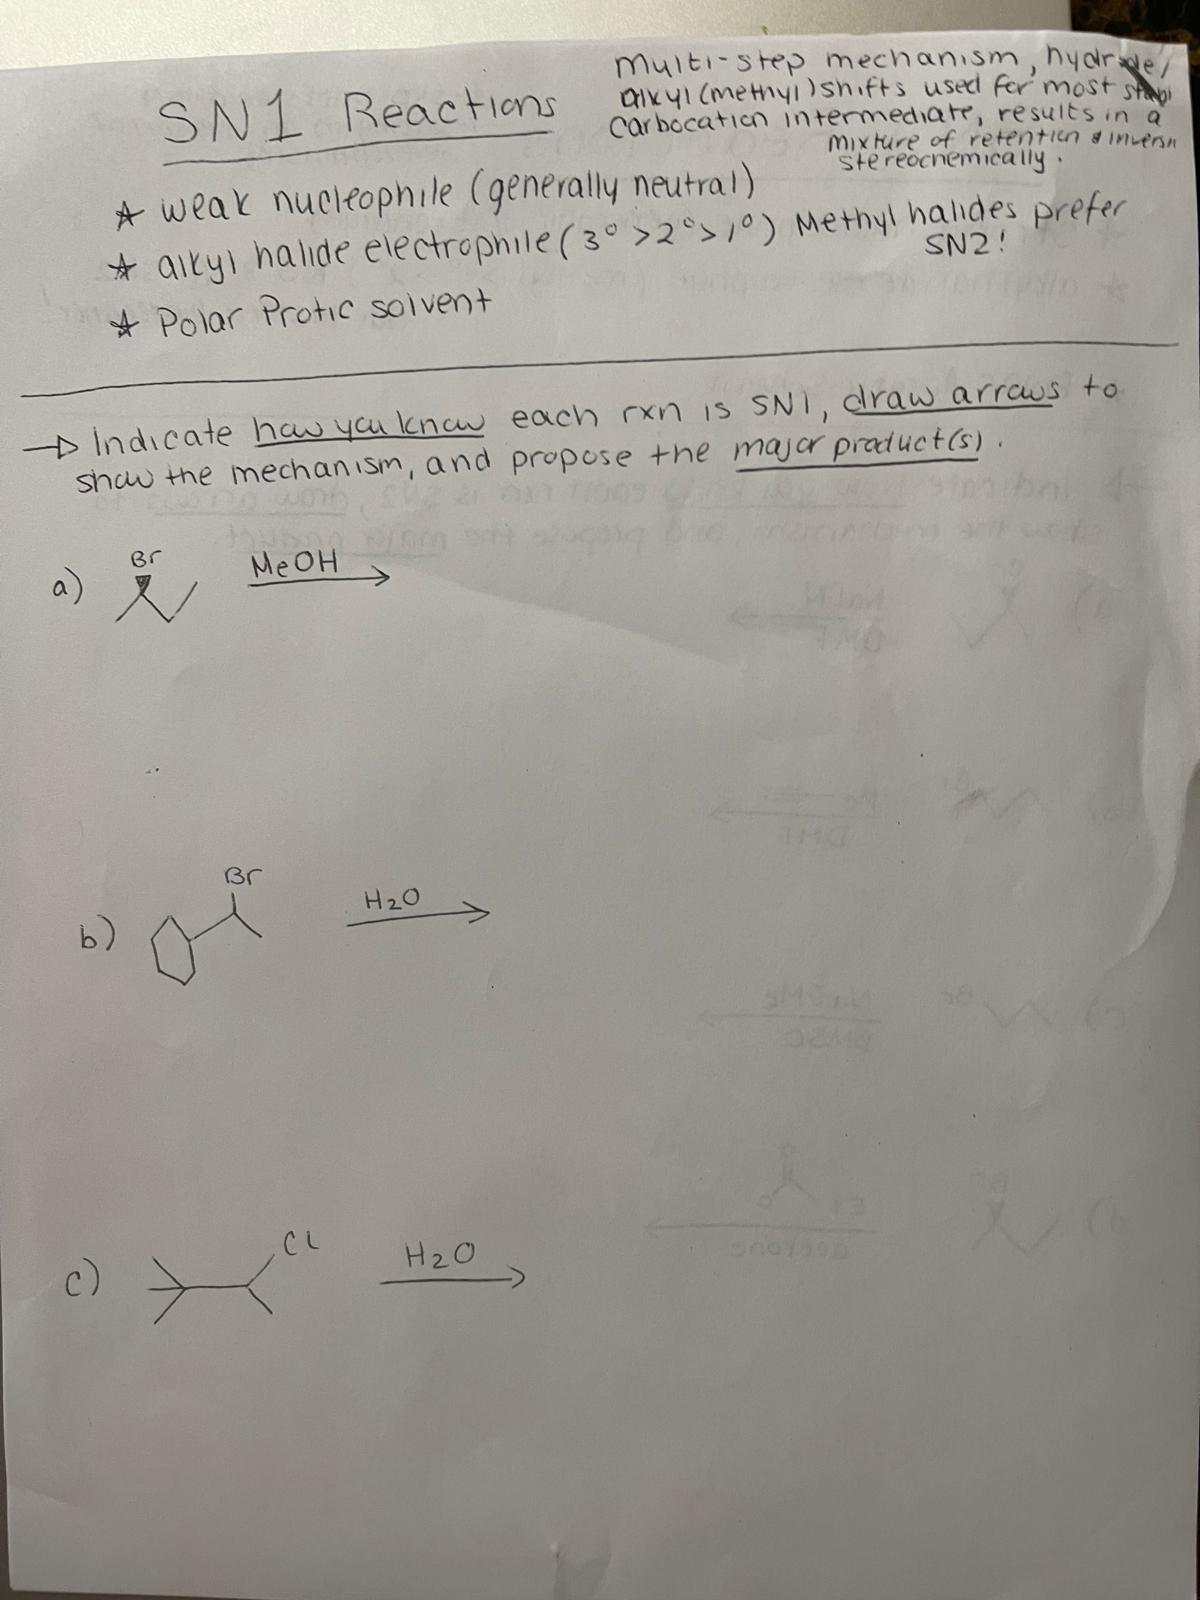 SN1 Reactions
multi-step mechanism, hydride/
alkyl (methyl) shifts used for most
carbocation intermediate, results in a
mixture of retention & inversn
stereochemically.
☆ weak nucleophile (generally neutral)
☆ alkyl halide electrophile (3° > 2° > 1°) Methyl halides prefer
SN2!
☆ Polar Protic solvent
→ Indicate how you know each rxn is SN1, draw arrows to
show the mechanism, and propose the major product(s).
a) Br MeOH
b) Br H2O
c) Cl H2O